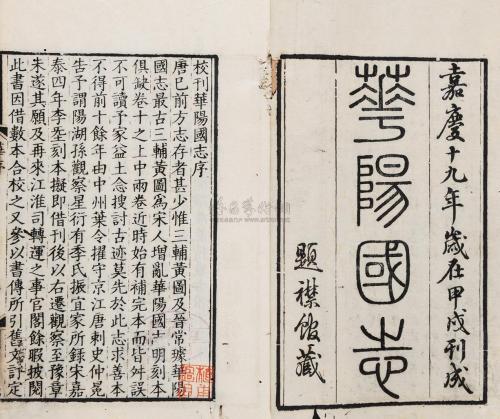 嘉慶十九年歲在甲戌刊成
華陽國志
題襟館藏
校刊華陽國志序
唐已前方志存者甚少惟三輔黃圖及晉常璩華陽
國志最古三輔黃圖爲宋人增亂華陽國志明刻本
俱缺卷十之上中兩卷近時始有補完本而皆舛誤
不可讀予家益土念搜討古迹莫先於此志求善本
不得前十餘年由中州葉令擢守京江唐刺史仲冕
告予謂陽湖孫觀察星衍有李氏振宜家所錄宋嘉
泰四年李𡌴刻本擬即借刊後以右遷觀察至豫章
未遂其願及再來江淮司轉運之事官閣餘暇披閱
此書因借數本合校之又參以書傳所引舊文評定